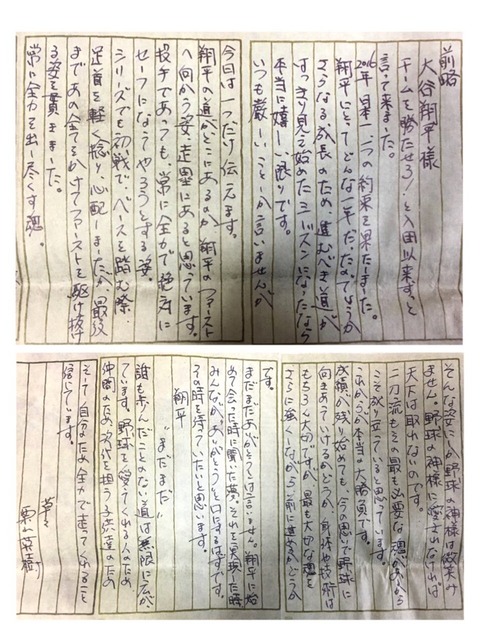 前略
大谷翔平様
チームを勝たせろ！と入団以来ずっと
言って来ました。
2016年 日本一、一つの約束を果たしました。
翔平にとってどんな一年だったのでしょうか
さらなる成長のため、進むべき道が
はっきり見え始めたシーズンになったなら
本当に嬉しい限りです。
いつも厳しいことしか言いませんが
今日は一つだけ伝えます。
翔平の道がどこにあるのか、翔平のファースト
へ向かう姿、走塁にあると思っています。
投手であっても、常に全力で絶対に
セーフになってやろうとする姿。
シリーズでも初戦で、ベースを踏む際、
足首を軽く捻り、心配しましたが、最後
まであの全てをかけてファーストを駆け抜け
る姿を貫きました。
常に全力を出し尽くす魂。
そんな姿にしか野球の神様は微笑み
ません。野球の神様に愛されなければ
天下は取れないのです。
二刀流もその最も必要な魂があるから
こそ成り立っていると思っています。
これからが本当の勝負です。
成績が残り始めても、今の思いで野球に
向きあっていけるかどうか、肉体や技術は
もちろん大切ですが、最も大切な魂を
さらに強くしながら前に進めるかどうか
です。
まだまだありがとうとは言いません。翔平に始
めて会った時に聞いた夢、それを果した時
みんながありがとうと口にするはずです。
その時を待っていたいと思います。
翔平
“まだまだ”
誰も歩んだことのない道は無限に広が
っています。野球を愛してくれる人のため
仲間のため、次代を担う子供達のため
そして自分のため全力で走ってくれること
信じています。
草々
栗山英樹